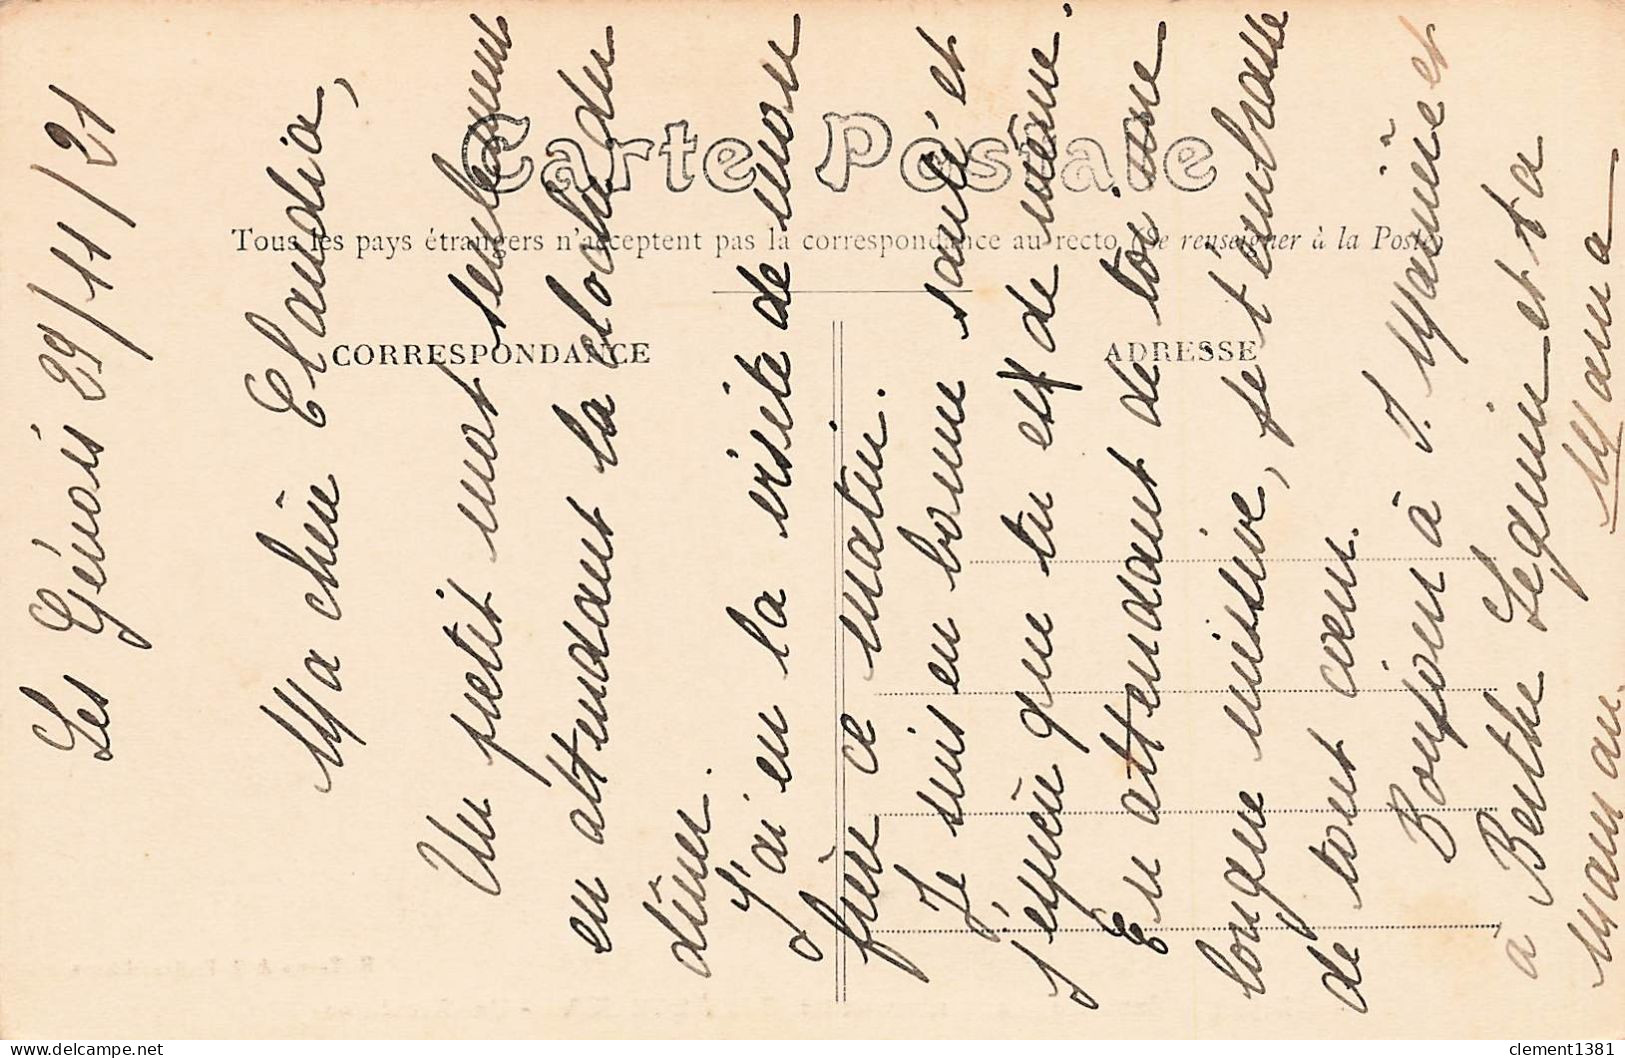 Carte Postale
Tous les pays étrangers n'acceptent pas la correspondance au recto (Se renseigner à la Poste)
CORRESPONDANCE
ADRESSE
Les Génois 29/11/21
Ma chère Claudia,
Un petit mot seulement
en attendant la cloche du
dîner.
J'ai eu la visite de mon
frère ce matin.
Je suis en bonne santé et
j'espère que tu est de même.
En attendant de toi une
longue missive, je t'embrasse
de tout cœur.
Bonjour à J. Marinier et
à Berthe Lequin et ta
maman
Mana
clement1381